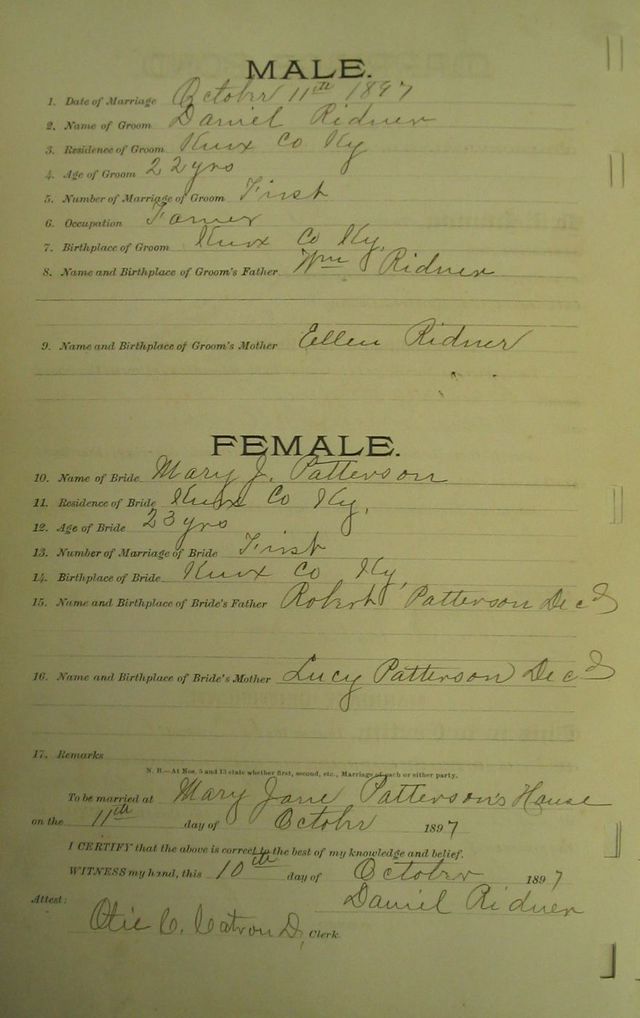 MALE.
1. Date of Marriage October 11th 1897
2. Name of Groom Daniel Ridner
3. Residence of Groom Knox Co Ky
4. Age of Groom 22 yrs
5. Number of Marriage of Groom First
6. Occupation Farmer
7. Birthplace of Groom Knox Co Ky,
8. Name and Birthplace of Groom's Father Wm Ridner
9. Name and Birthplace of Groom's Mother Eellen Ridner
FEMALE.
10. Name of Bride Mary J. Patterson
11. Residence of Bride Knox Co Ky,
12. Age of Bride 23 yrs
13. Number of Marriage of Bride First
14. Birthplace of Bride Knox Co Ky,
15. Name and Birthplace of Bride's Father Robert Patterson Decd
16. Name and Birthplace of Bride's Mother Lucy Patterson Decd
17. Remarks
N. B.—At Nos. 5 and 13 state whether first, second, etc., Marriage of each or either party.
To be married at Mary Jane Patterson's House
on the 11th day of October 1897
I CERTIFY that the above is correct to the best of my knowledge and belief.
WITNESS my hand, this 10th day of October 1897
Daniel Ridner
Attest:
Otie C. Catron D, Clerk.